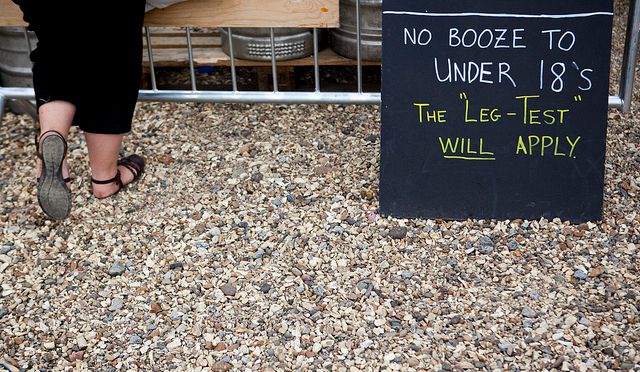 NO BOOZE TO
UNDER 18'S
THE "LEG-TEST"
WILL APPLY.